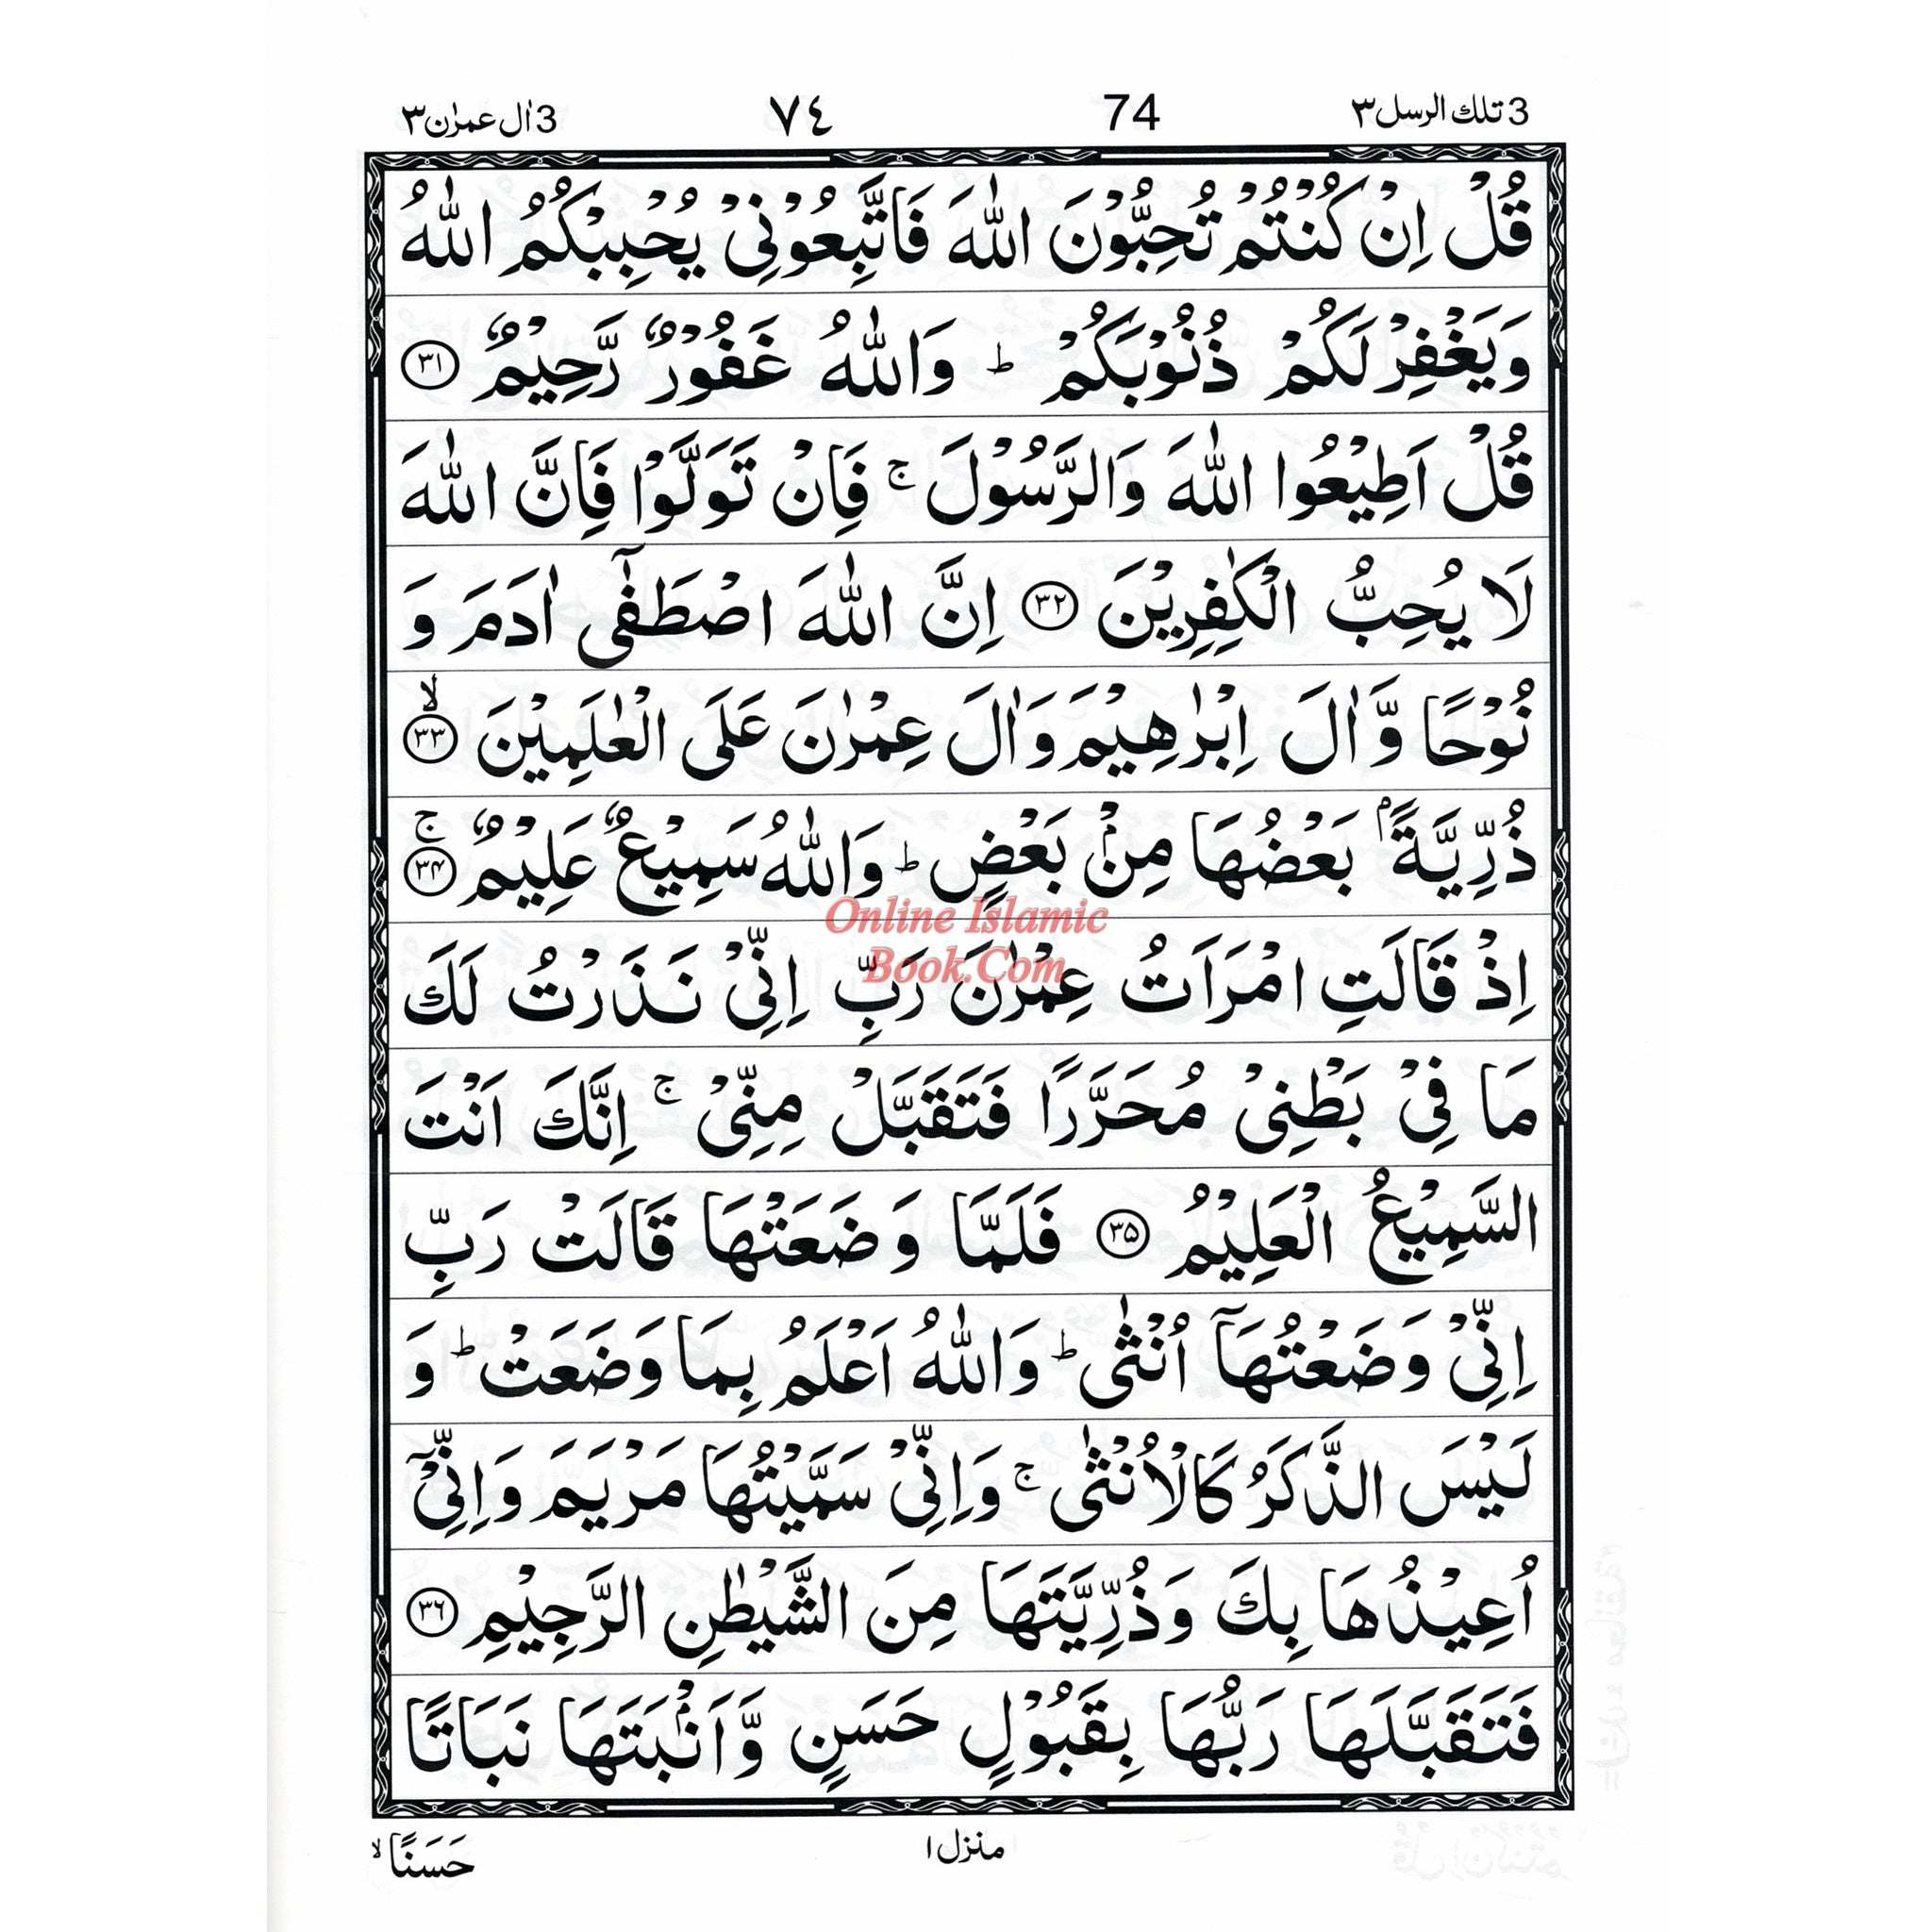 3 تلك الرسل ٣ 74 ٧٤ 3 اٰل عمرٰن ٣
قُلْ اِنْ كُنْتُمْ تُحِبُّوْنَ اللّٰهَ فَاتَّبِعُوْنِيْ يُحْبِبْكُمُ اللّٰهُ
وَيَغْفِرْ لَكُمْ ذُنُوْبَكُمْ ؕ وَاللّٰهُ غَفُوْرٌ رَّحِيْمٌ ۝۳۱
قُلْ اَطِيْعُوا اللّٰهَ وَالرَّسُوْلَ ۚ فَاِنْ تَوَلَّوْا فَاِنَّ اللّٰهَ
لَا يُحِبُّ الْكٰفِرِيْنَ ۝۳۲ اِنَّ اللّٰهَ اصْطَفٰٓى اٰدَمَ وَ
نُوْحًا وَّاٰلَ اِبْرٰهِيْمَ وَاٰلَ عِمْرٰنَ عَلَى الْعٰلَمِيْنَ ۙ۝۳۳
ذُرِّيَّةًۢ بَعْضُهَا مِنْۢ بَعْضٍ ؕ وَاللّٰهُ سَمِيْعٌ عَلِيْمٌ ۚ۝۳۴
Online Islamic
Book.Com
اِذْ قَالَتِ امْرَاَتُ عِمْرٰنَ رَبِّ اِنِّيْ نَذَرْتُ لَكَ
مَا فِيْ بَطْنِيْ مُحَرَّرًا فَتَقَبَّلْ مِنِّيْ ۚ اِنَّكَ اَنْتَ
السَّمِيْعُ الْعَلِيْمُ ۝۳۵ فَلَمَّا وَضَعَتْهَا قَالَتْ رَبِّ
اِنِّيْ وَضَعْتُهَآ اُنْثٰى ؕ وَاللّٰهُ اَعْلَمُ بِمَا وَضَعَتْ ؕ وَ
لَيْسَ الذَّكَرُ كَالْاُنْثٰى ۚ وَاِنِّيْ سَمَّيْتُهَا مَرْيَمَ وَاِنِّيْٓ
اُعِيْذُهَا بِكَ وَذُرِّيَّتَهَا مِنَ الشَّيْطٰنِ الرَّجِيْمِ ۝۳۶
فَتَقَبَّلَهَا رَبُّهَا بِقَبُوْلٍ حَسَنٍ وَّاَنْۢبَتَهَا نَبَاتًا
منزل ۱
حَسَنًا ۙ